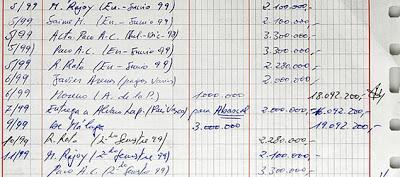 5/99 M. Rajoy (En-Junio 99) 2.100.000,-
5/99 Jaime M. (En-Junio 99) 2.100.000,-
5/99 Acta. Paco A.C. 98 3.300.000
5/99 Paco A.C. (En-Junio 99) 3.300.000
5/99 R. Rato (En-Junio 99) 2.280.000,-
6/99 Javier Arenas (pagos varios) 2.000.000,-
6/99 Moreno (A. de la P.) 1000.000 18.092.200,-
7/99 Entrega a Alvaro Lap. (País Vasco) para 2.000.000,- 16.092.200,-
9/99 De 3.000.000 19.092.200,-
10/99 R. Rato (2º Semestre 99) 2.280.000,-
11/99 M. Rajoy (2º Semestre 99) 2.100.000
Paco A.C. (2º Semestre 99) 3.300.000